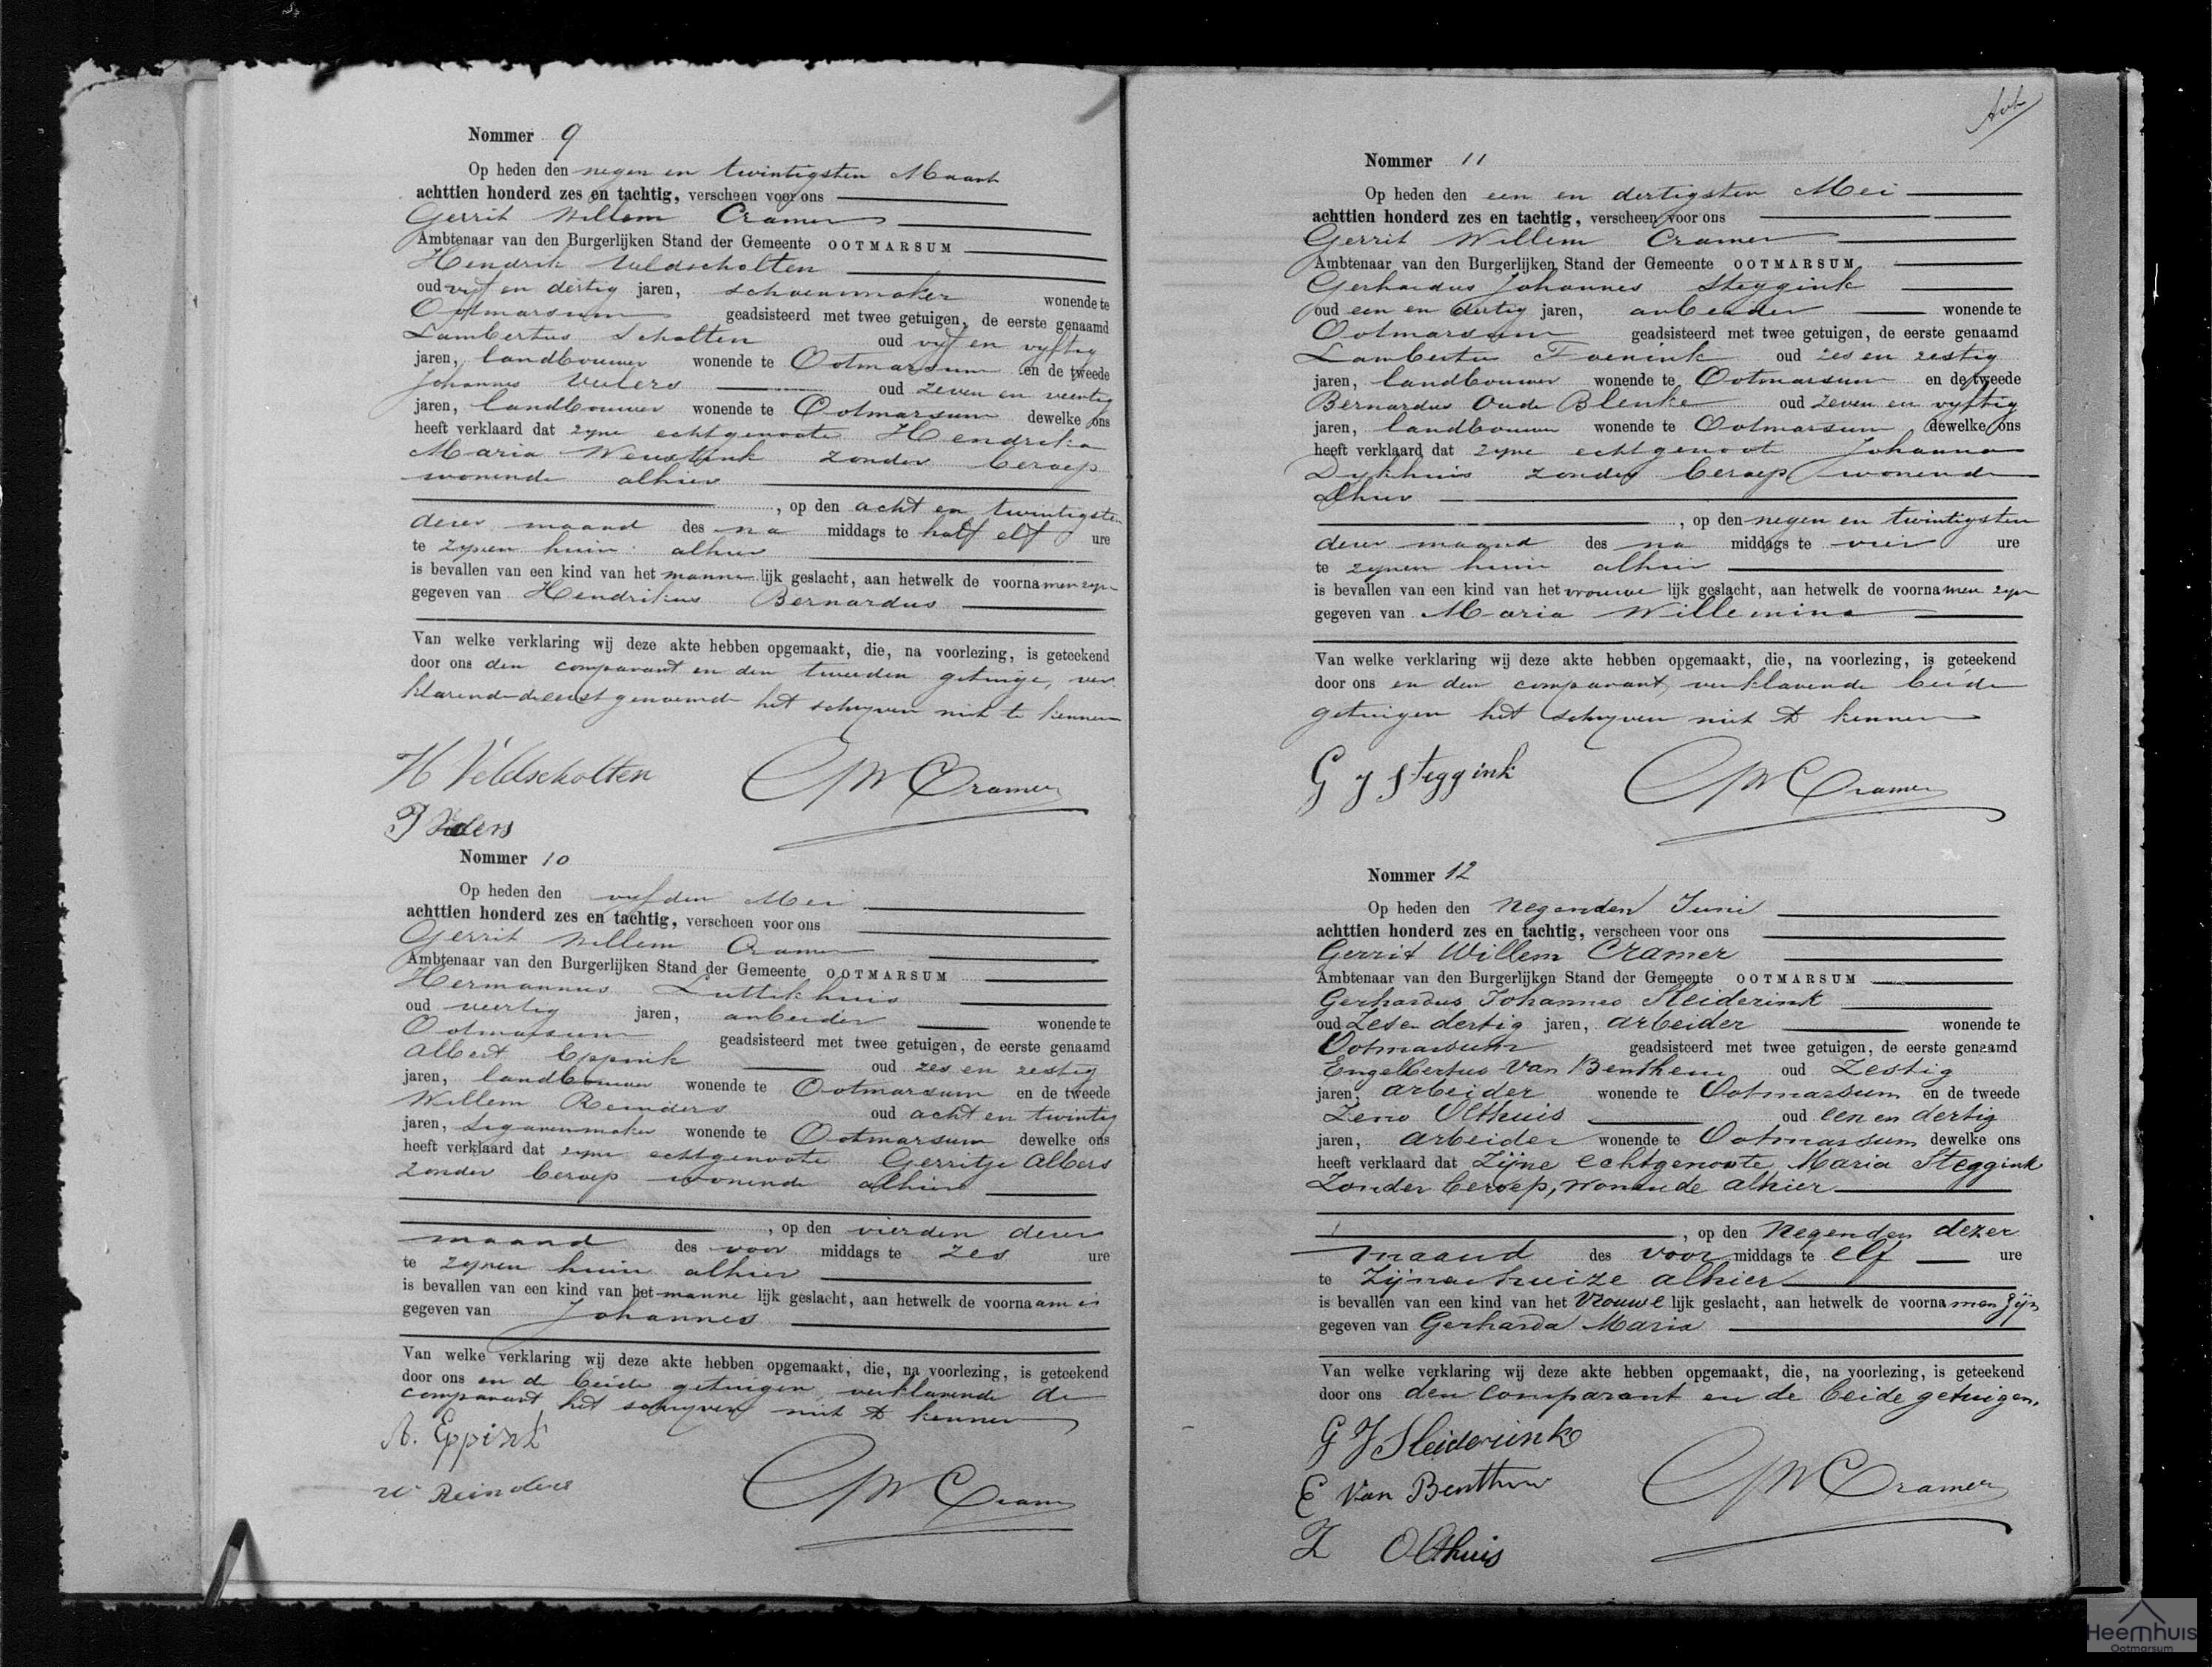 Nommer 9
Op heden den negen en twintigsten Maart
achttien honderd zes en tachtig, verscheen voor ons
Gerrit Willem Cramer
Ambtenaar van den Burgerlijken Stand der Gemeente OOTMARSUM
Hendrik Veldscholten
oud vijf en dertig jaren, schoenmaker wonende te
Ootmarsum geadsisteerd met twee getuigen, de eerste genaamd
Lambertus Scholten oud vijf en vyftig
jaren, landbouwer wonende te Ootmarsum en de tweede
Johannes oud zeven en veertig
jaren, landbouwer wonende te Ootmarsum dewelke ons
heeft verklaard dat zyne echtgenoote Hendrika
Maria zonder beroep
wonende alhier
, op den acht en twintigsten
dezer maand des na middags te half elf ure
te zynen huize alhier
is bevallen van een kind van het manne lijk geslacht, aan hetwelk de voornamen zyn
gegeven van Hendrikus Bernardus
Van welke verklaring wij deze akte hebben opgemaakt, die, na voorlezing, is geteekend
door ons den comparant en den tweeden getuige, ver
klarende de eerstgenoemde het schryven niet te kennen
H Veldscholten GW Cramer
Nommer 10
Op heden den vyfden Mei
achttien honderd zes en tachtig, verscheen voor ons
Gerrit Willem Cramer
Ambtenaar van den Burgerlijken Stand der Gemeente OOTMARSUM
Hermannus Luttikhuis
oud veertig jaren, arbeider wonende te
Ootmarsum geadsisteerd met twee getuigen, de eerste genaamd
Albert Eppink oud zes en zestig
jaren, landbouwer wonende te Ootmarsum en de tweede
Willem Reinders oud acht en twintig
jaren, sigarenmaker wonende te Ootmarsum dewelke ons
heeft verklaard dat zyne echtgenoote Gerritje Albers
zonder beroep wonende alhier
, op den vierden dezer
maand des voor middags te zes ure
te zynen huize alhier
is bevallen van een kind van het manne lijk geslacht, aan hetwelk de voornaam is
gegeven van Johannes
Van welke verklaring wij deze akte hebben opgemaakt, die, na voorlezing, is geteekend
door ons en de beide getuigen, verklarende de
comparant het schryven niet te kennen
A. Eppink
W Reinders GW Cramer
Nommer 11
Op heden den een en dertigsten Mei
achttien honderd zes en tachtig, verscheen voor ons
Gerrit Willem Cramer
Ambtenaar van den Burgerlijken Stand der Gemeente OOTMARSUM
Gerhardus Johannes Steggink
oud een en dertig jaren, arbeider wonende te
Ootmarsum geadsisteerd met twee getuigen, de eerste genaamd
Lambertus oud zes en zestig
jaren, landbouwer wonende te Ootmarsum en de tweede
Bernardus Oude Blenke oud zeven en vyftig
jaren, landbouwer wonende te Ootmarsum dewelke ons
heeft verklaard dat zyne echtgenoote Johanna
Dykhuis zonder beroep wonende
alhier
, op den negen en twintigsten
dezer maand des na middags te vier ure
te zynen huize alhier
is bevallen van een kind van het vrouwe lijk geslacht, aan hetwelk de voornamen zyn
gegeven van Maria Willemina
Van welke verklaring wij deze akte hebben opgemaakt, die, na voorlezing, is geteekend
door ons en den comparant, verklarende beide
getuigen het schryven niet te kennen
G J Steggink GW Cramer
Nommer 12
Op heden den negenden Juni
achttien honderd zes en tachtig, verscheen voor ons
Gerrit Willem Cramer
Ambtenaar van den Burgerlijken Stand der Gemeente OOTMARSUM
Gerhardus Johannes Sleiderink
oud Zes en dertig jaren, arbeider wonende te
Ootmarsum geadsisteerd met twee getuigen, de eerste genaamd
Engelbertus Van Benthem oud Zestig
jaren, arbeider wonende te Ootmarsum en de tweede
Zeno Olthuis oud een en dertig
jaren, arbeider wonende te Ootmarsum dewelke ons
heeft verklaard dat Zijne echtgenoote Maria Steggink
Zonder beroep, wonende alhier
, op den Negenden dezer
maand des voor middags te elf ure
te Zijnen huize alhier
is bevallen van een kind van het Vrouwe lijk geslacht, aan hetwelk de voornamen zijn
gegeven van Gerharda Maria
Van welke verklaring wij deze akte hebben opgemaakt, die, na voorlezing, is geteekend
door ons den comparant en de beide getuigen.
G J Sleiderink
E Van Benthem GW Cramer
Z Olthuis
Heemhuis
Ootmarsum